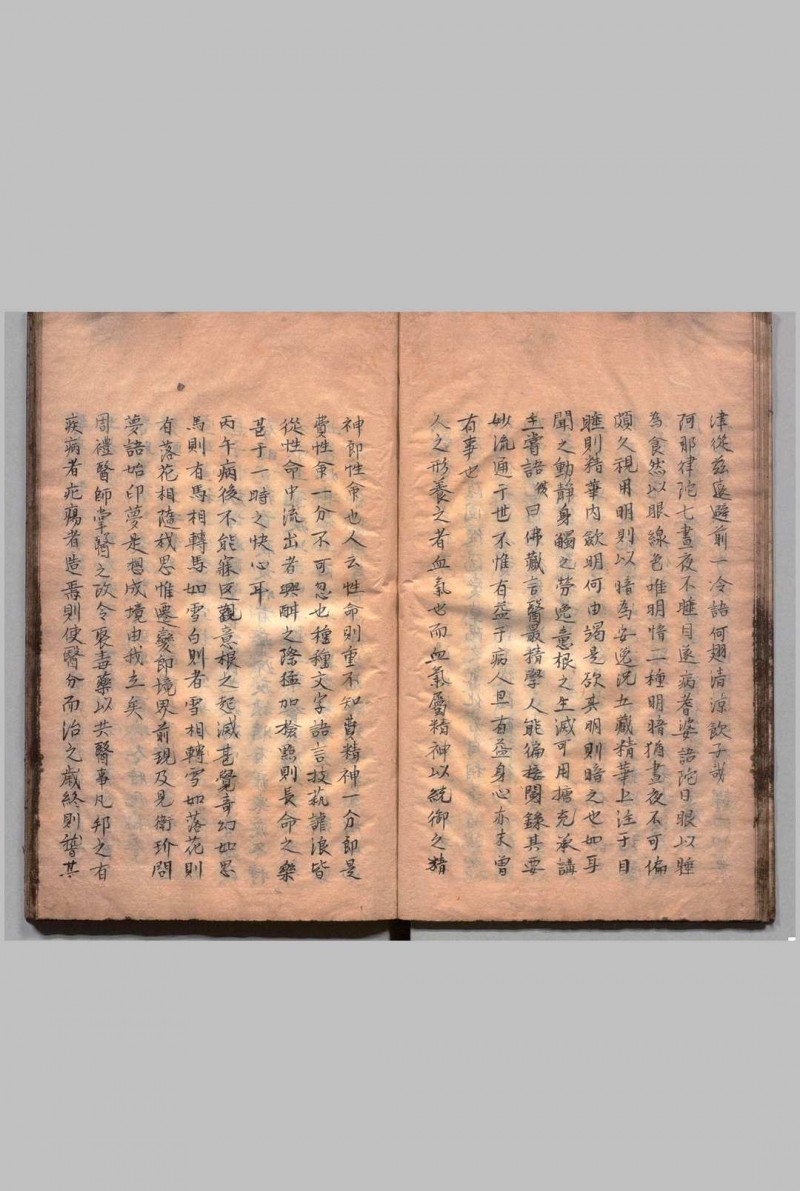 津從茲遠避前一冷語何翅清涼飲子哉
阿那律陀七晝夜不睡目遂病耆婆語陀曰眼以睡
為食然以眼緣色唯明暗二種明暗猶晝夜不可偏
頗久視用明則以暗為安逸況五藏精華上注于目
睡則精華內斂明何由竭是欲其明則暗之也如耳
聞之動靜身觸之勞逸意根之生滅可用擴充承講
主嘗語後曰佛藏言醫最精學人能偏搜閱錄其要
妙流通于世不惟有益于病人且有益身心亦未曾
有事也
人之形養之者血氣也而血氣屬精神以統御之猶
神即性命也人云性命則重不知費精神一分即是
費性命一分不可忽也種種文字語言技藝謔浪皆
從性命中流出者興酣之際極加撿點則長命之樂
甚于一時之快心耳
丙午病後不能寐返觀意根之起滅甚覺奇幻如思
馬則有馬相轉馬如雪白則者雪相轉雪如落花則
有落花相隨我思惟遷變即境界前現及見衛玠問
夢語始印夢是想成境由我立矣
周禮醫師掌醫之政令聚毒藥以共醫事凡邦之有
疾病者疕瘍者造焉則使醫分而治之歲終則稽其